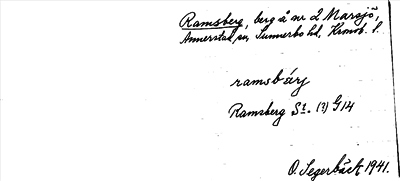 Ramsberg, berg å nr 2 Marsjö,
Annerstad sn, Sunnerbo hd, Kronob. l.
ramsbärj
Ramsberg St. (?) G 14
O. Segerbäck 1941.